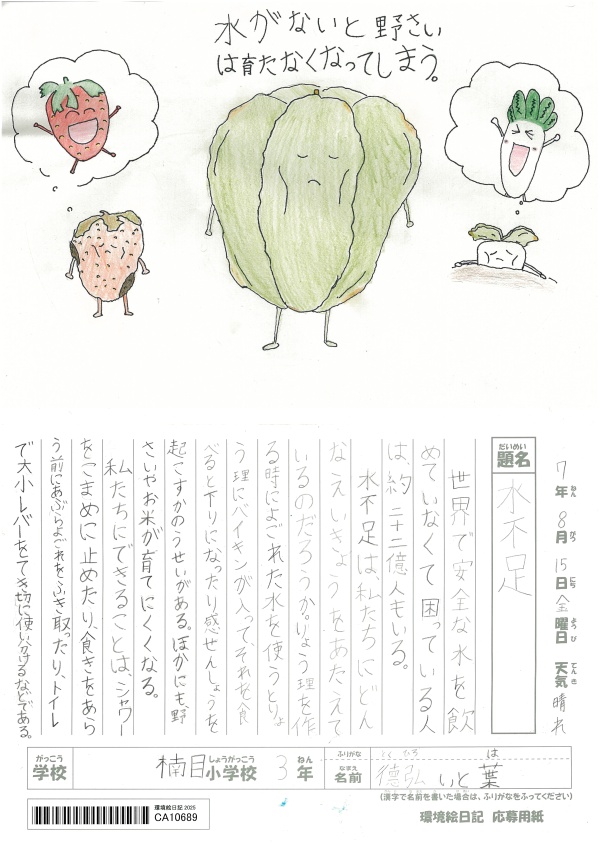 水がないと野さい
は育たなくなってしまう。
7年 8月 15日 金曜日 天気 晴れ
ねん がつ にち ようび てんき
だいめい
題名
水不足
世界で安全な水を飲
めていなくて困っている人
は、約二十二億人もいる。
水不足は、私たちにどん
なえいきょうをあたえて
いるのだろうか。りょう理を作
る時によごれた水を使うとりょ
う理にバイキンが入って、それを食
べると下りになったり感せんしょうを
起こすかのうせいがある。ほかにも、野
さいやお米が育てにくくなる。
私たちにできることは、シャワー
をこまめに止めたり、食きをあら
う前にあぶらよごれをふき取ったり、トイレ
で大小レバーをてき切に使い分けるなどである。
がっこう しょうがっこう ねん
学校 楠目小学校 3年
ふりがな とくひろ は
なまえ
名前 德弘いと葉
(漢字で名前を書いた場合は、ふりがなをふってください)
環境絵日記 2025
CA10689
環境絵日記 応募用紙